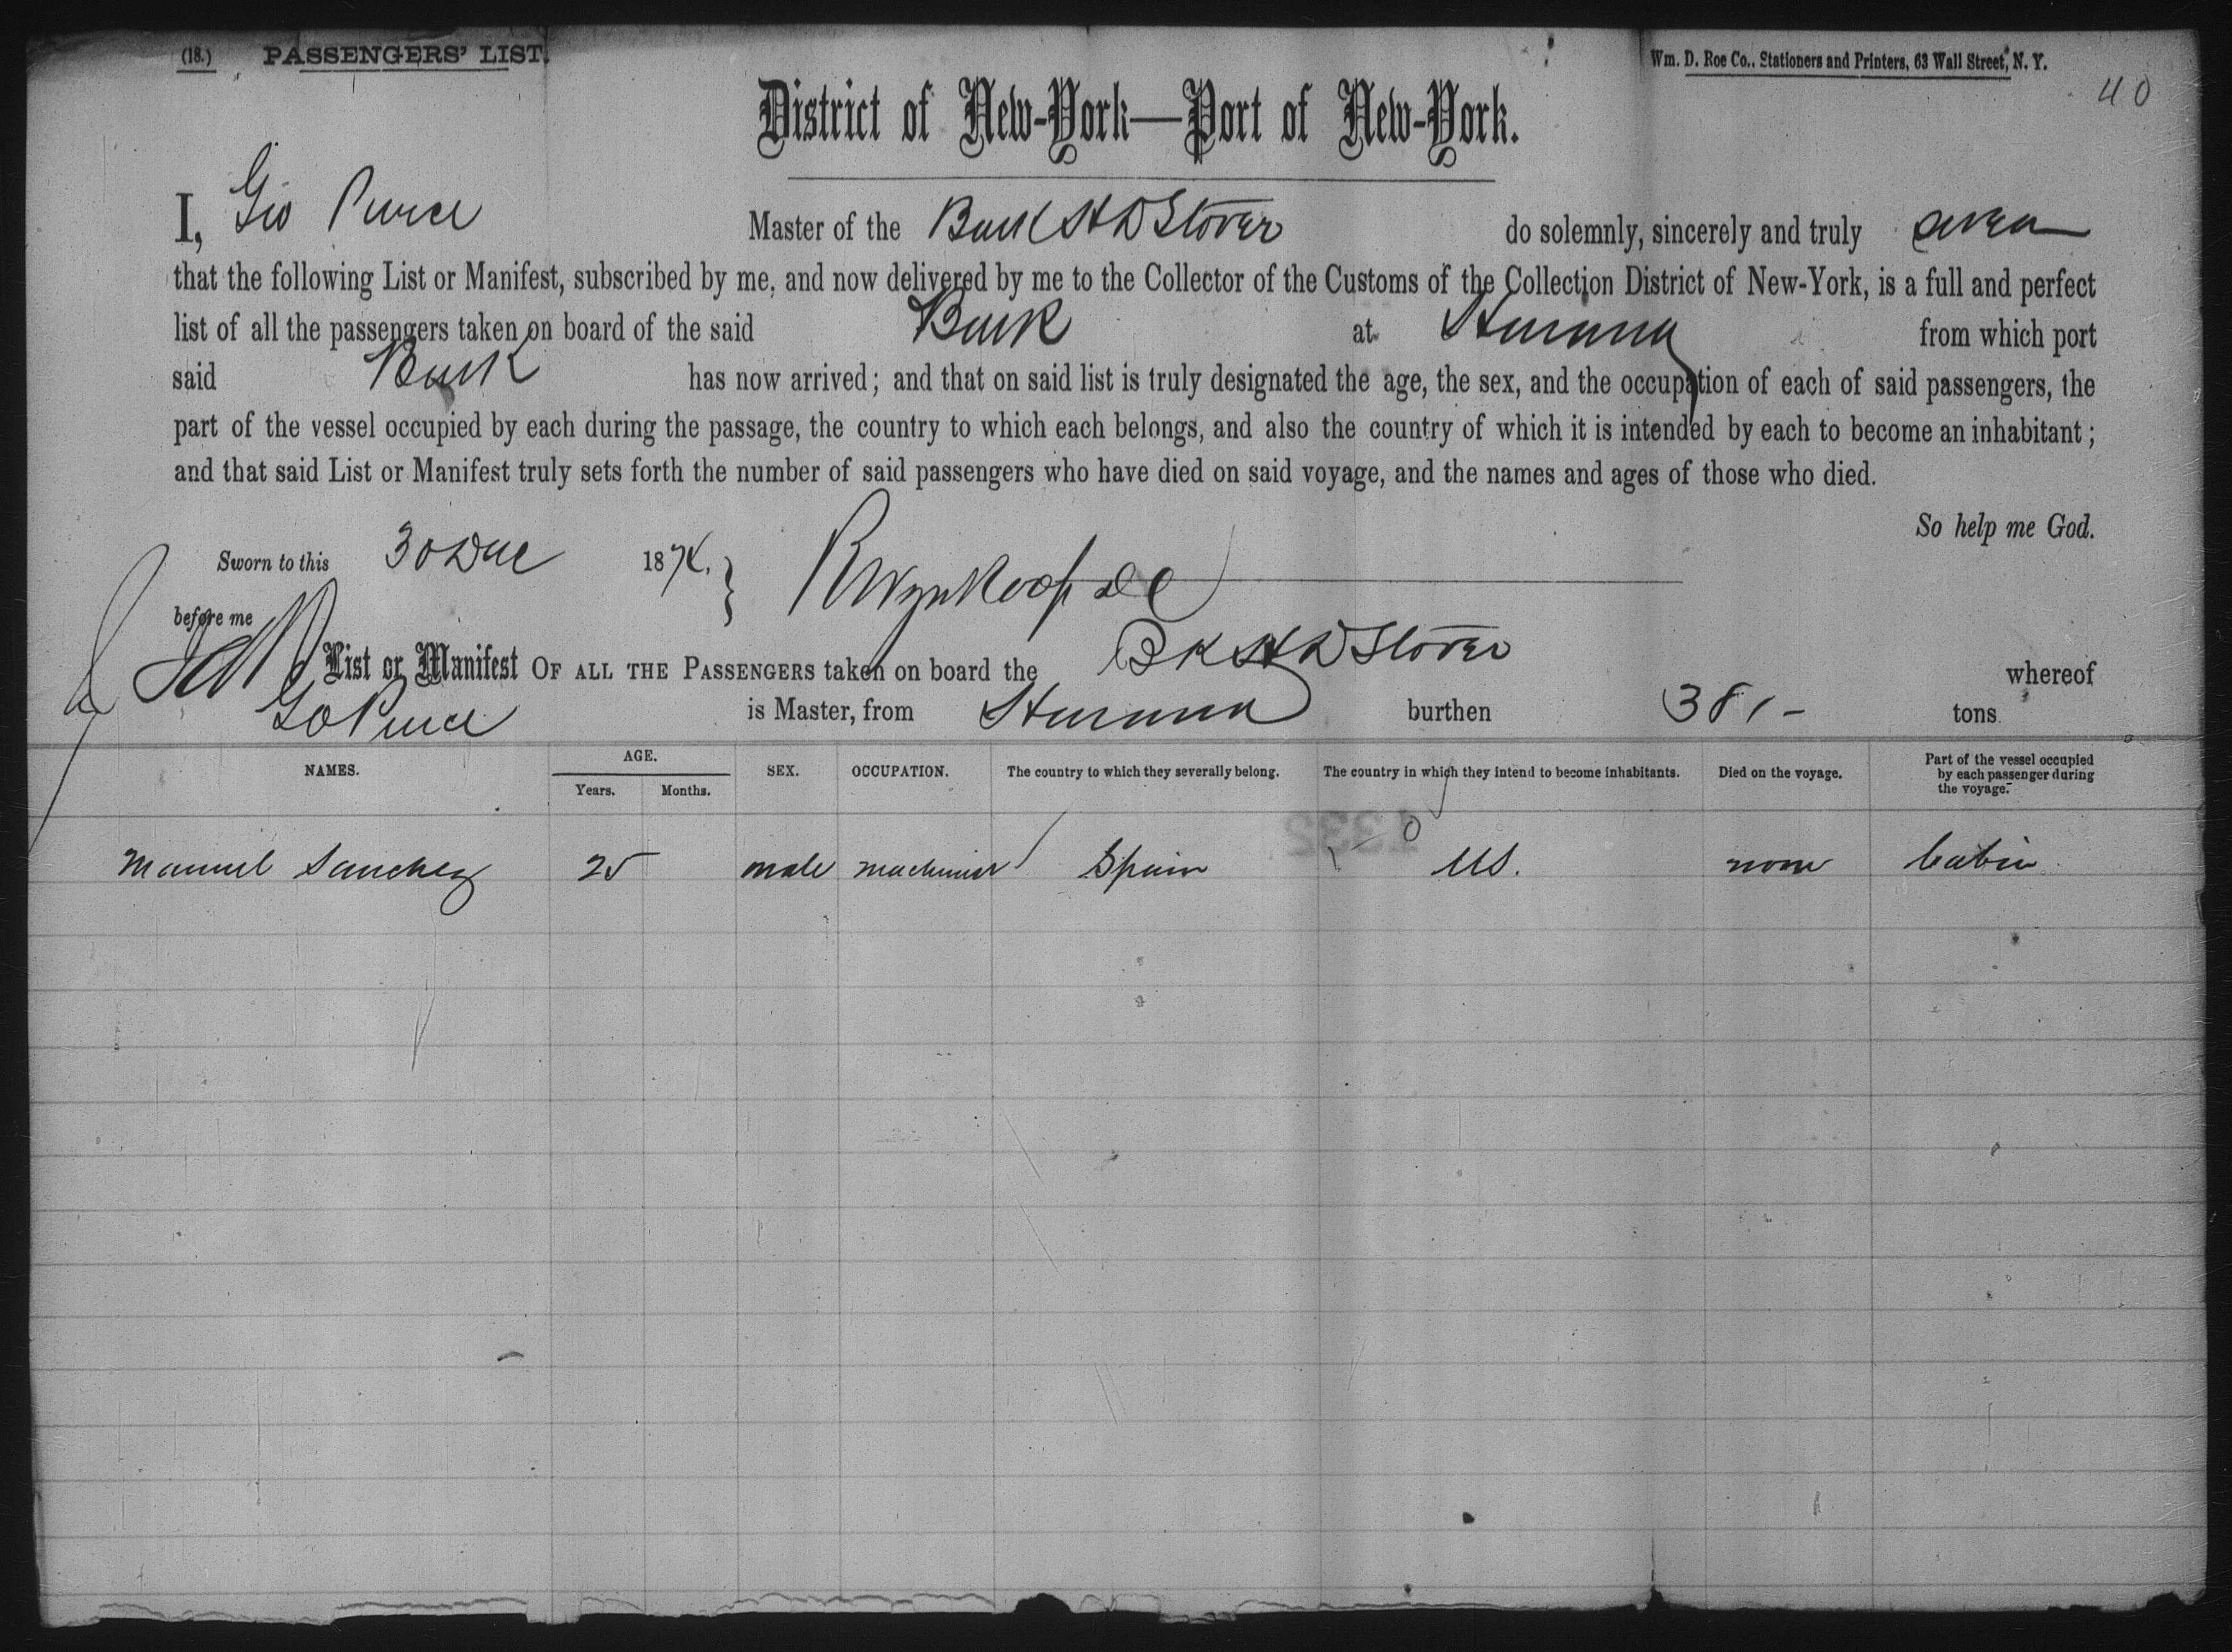 (18.) PASSENGERS' LIST. Wm. D. Roe Co., Stationers and Printers, 63 Wall Street, N. Y.
40
District of New-York—Port of New-York.
I, Geo Peirce Master of the Bark H D Stover do solemnly, sincerely and truly swear
that the following List or Manifest, subscribed by me, and now delivered by me to the Collector of the Customs of the Collection District of New-York, is a full and perfect
list of all the passengers taken on board of the said Bark at Havana from which port
said Bark has now arrived; and that on said list is truly designated the age, the sex, and the occupation of each of said passengers, the
part of the vessel occupied by each during the passage, the country to which each belongs, and also the country of which it is intended by each to become an inhabitant;
and that said List or Manifest truly sets forth the number of said passengers who have died on said voyage, and the names and ages of those who died.
So help me God.
Sworn to this 30 Dec 187
before me
R Wynkoop D C
List or Manifest OF ALL THE PASSENGERS taken on board the Bk H D Stover whereof
Geo Peirce is Master, from Havana burthen 381 - tons
NAMES. AGE. SEX. OCCUPATION. The country to which they severally belong. The country in which they intend to become inhabitants. Died on the voyage. Part of the vessel occupied by each passenger during the voyage.
Years. Months.
Manuel Sanchez 25 male machinist Spain US. none Cabin